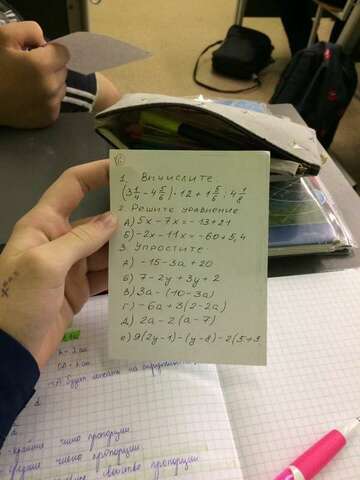 1. Вычислите:
(3 1/4 - 4 5/6) · 12 + 1 5/6 : 4 1/8
2. Решите уравнение
А) 5x - 7x = -13 + 21
Б) -2x - 11x = -60 + 5,4
3. Упростите:
А) -15 - 3a + 20
Б) 7 - 2y + 3y + 2
В) 3a - (-10 - 3a)
Г) -6a + 3(2 - 2a)
Д) 2a - 2(a - 7)
е) 9(2y - 1) - (y - 8) - 2(5 + 3
крайние числа пропорции
средние числа пропорции
свойство пропорции